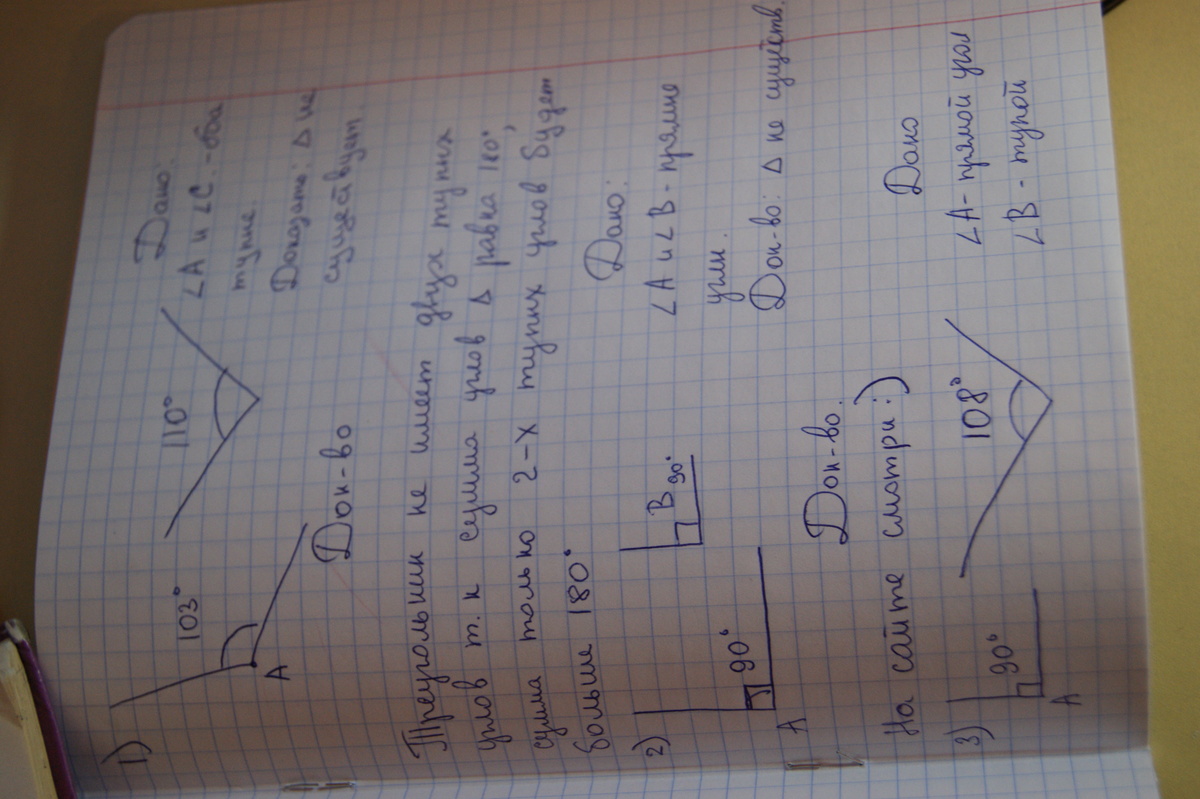 1)
103°
A
110°
Дано:
∠A и ∠C.-оба
тупые.
Доказать: Δ не
существует.
Док-во
Треугольник не имеет двух тупых
углов т.к сумма углов Δ равна 180°,
сумма только 2-х тупых углов будет
больше 180°
2)
90°
A
B
90°
Дано:
∠A и ∠B - прямые
углы.
Док-во: Δ не существ.
Док-во.
На сайте смотри:)
3)
90°
A
108°
Дано
∠A- прямой угол
∠B - тупой